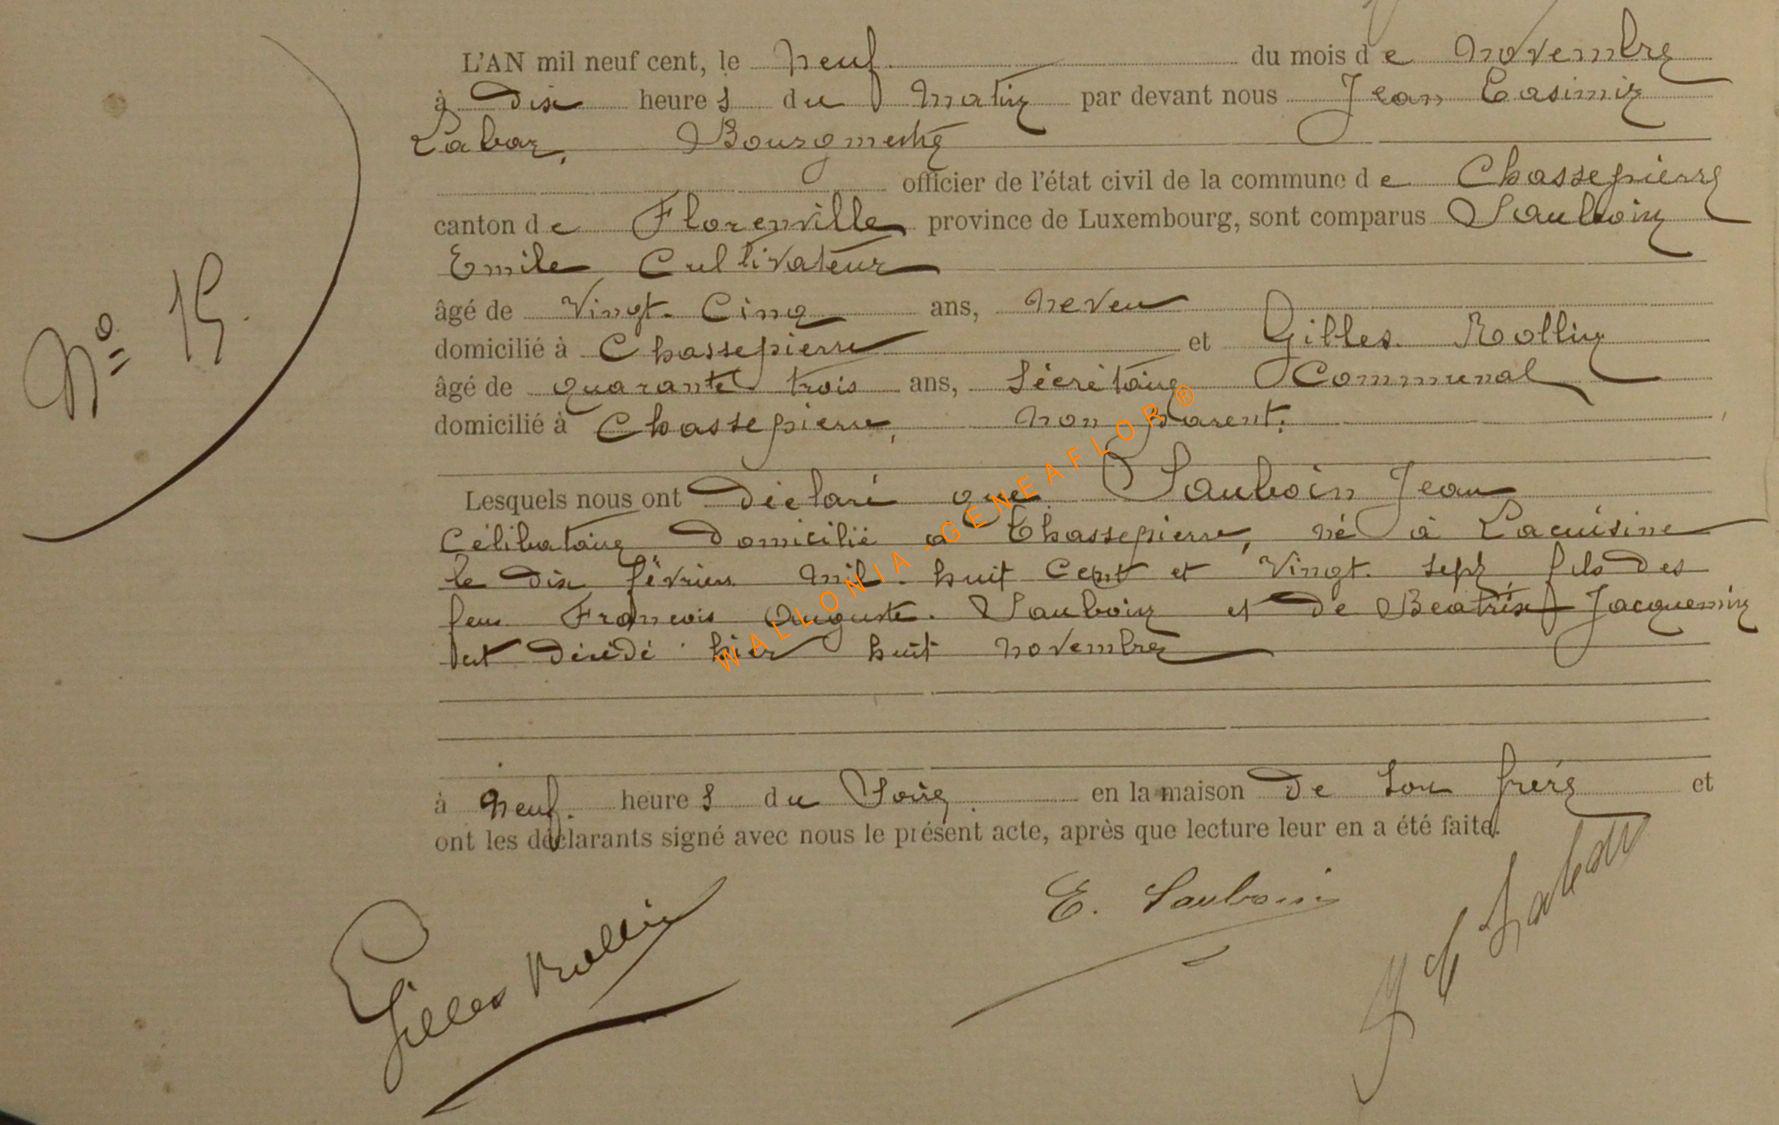 L'AN mil neuf cent, le neuf du mois de novembre
à Dix heures du Matin par devant nous Jean Casimir
Labar, Bourgmestre
officier de l'état civil de la commune de Chassepierre
canton de Florenville province de Luxembourg, sont comparus Sauboin
Emile Cultivateur
âgé de Vingt-Cinq ans, neveu
domicilié à Chassepierre et Gilles Rollin
âgé de quarante trois ans, Sécrétaire Communal
domicilié à Chassepierre, non parent.
Lesquels nous ont Déclaré que Sauboin Jean
Célibataire Domicilié à Chassepierre, né à Lacuisine
le dix février mil huit cent et Vingt sept fils des
feu François Auguste Sauboin et de Beatrix Jacquemin
est décédé hier huit novembre
à neuf heures du Soir en la maison De son frère et
ont les déclarants signé avec nous le présent acte, après que lecture leur en a été faite.
Nº 15.
Gilles Rollin
E. Sauboin
J C Labar
WALLONIA-GENEAFLOR®